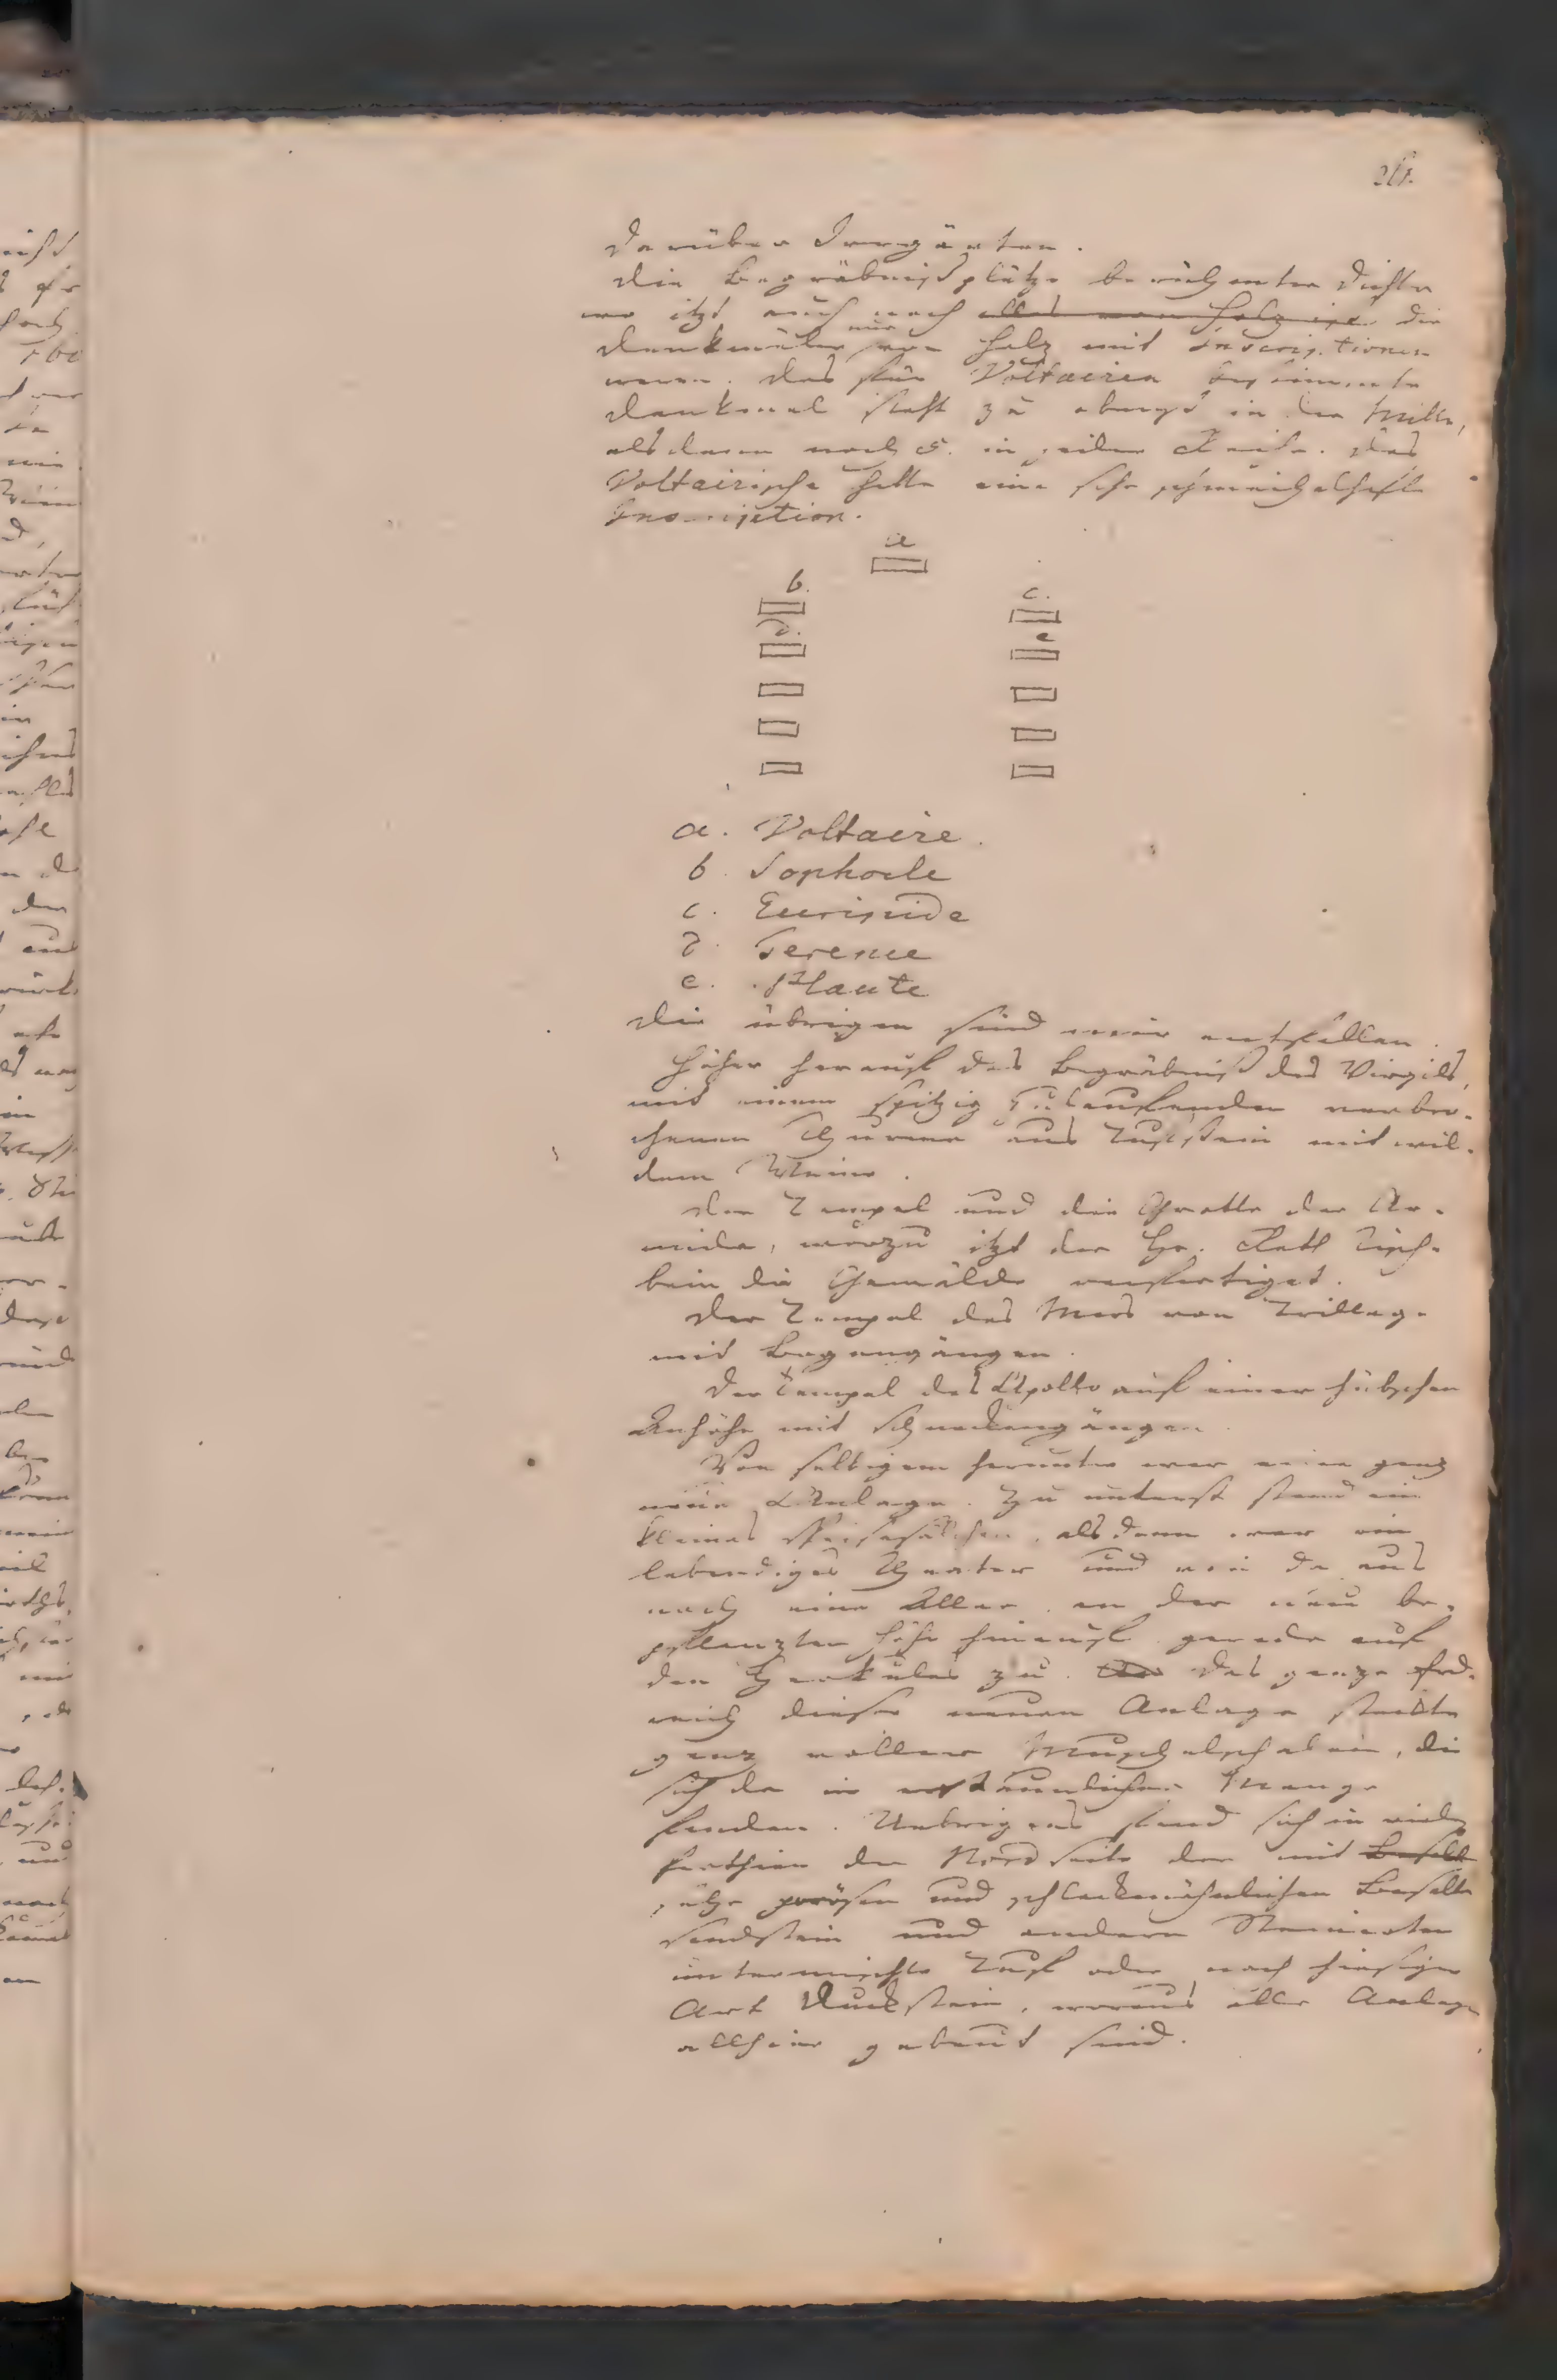 darüber Irrgärten.
Die Begräbnißplätze berühmter Dichter
wo itzt auch noch alles von Holz ist die
Denkmäler nur von Holz mit Inscriptionen
waren. Das für Voltairen bestimmte
Denkmal steht zu oberst in der Mitte,
alsdann noch 5. in jeder Reihe. Das
Voltairische hatte eine sehr schmeichelhafte
Inscription.
a
b. c.
d. e
a. Voltaire.
b. Sophocle
c. Euripide
d. Terence
e. Plaute
Die übrigen sind mir entfallen.
Höher herauf das Begräbniß des Virgils,
mit einem spitzig zulaufenden verbro-
chenen Thurme aus Tufstein mit wil-
dem Weine.
Der Tempel und die Grotte der Ar-
mide, wozu itzt der Hr. Rath Tisch-
bein die Gemälde verfertiget.
Der Tempel des Mars von Trillage
mit Bogengängen.
Der Tempel des Apollo auf einer hübschen
Anhöhe mit Schneckengängen.
Von selbigem herunter war eine ganz
neue Anlage. Zu unterst stand ein
kleines Speisesälchen, alsdann war ein
lebendiges Theater und von da aus
noch eine Allee an der neu be-
pflanzten Höhe hinauf gerade auf
den Herkules zu. Das ganze Erd-
reich dieser neuen Anlage steckte
ganz voller Muschelschalen, die
sich da in erstaunlicher Menge
fanden. Uebrigens fand sich in
der Nordseite der mit Basalt
porösen und schlackenähnlichen Basalte
Sandstein und andern Steinarten
untermischte Tuf oder nach hiesiger
Art Duckstein, woraus alle Anlagen
allhier gebaut sind.